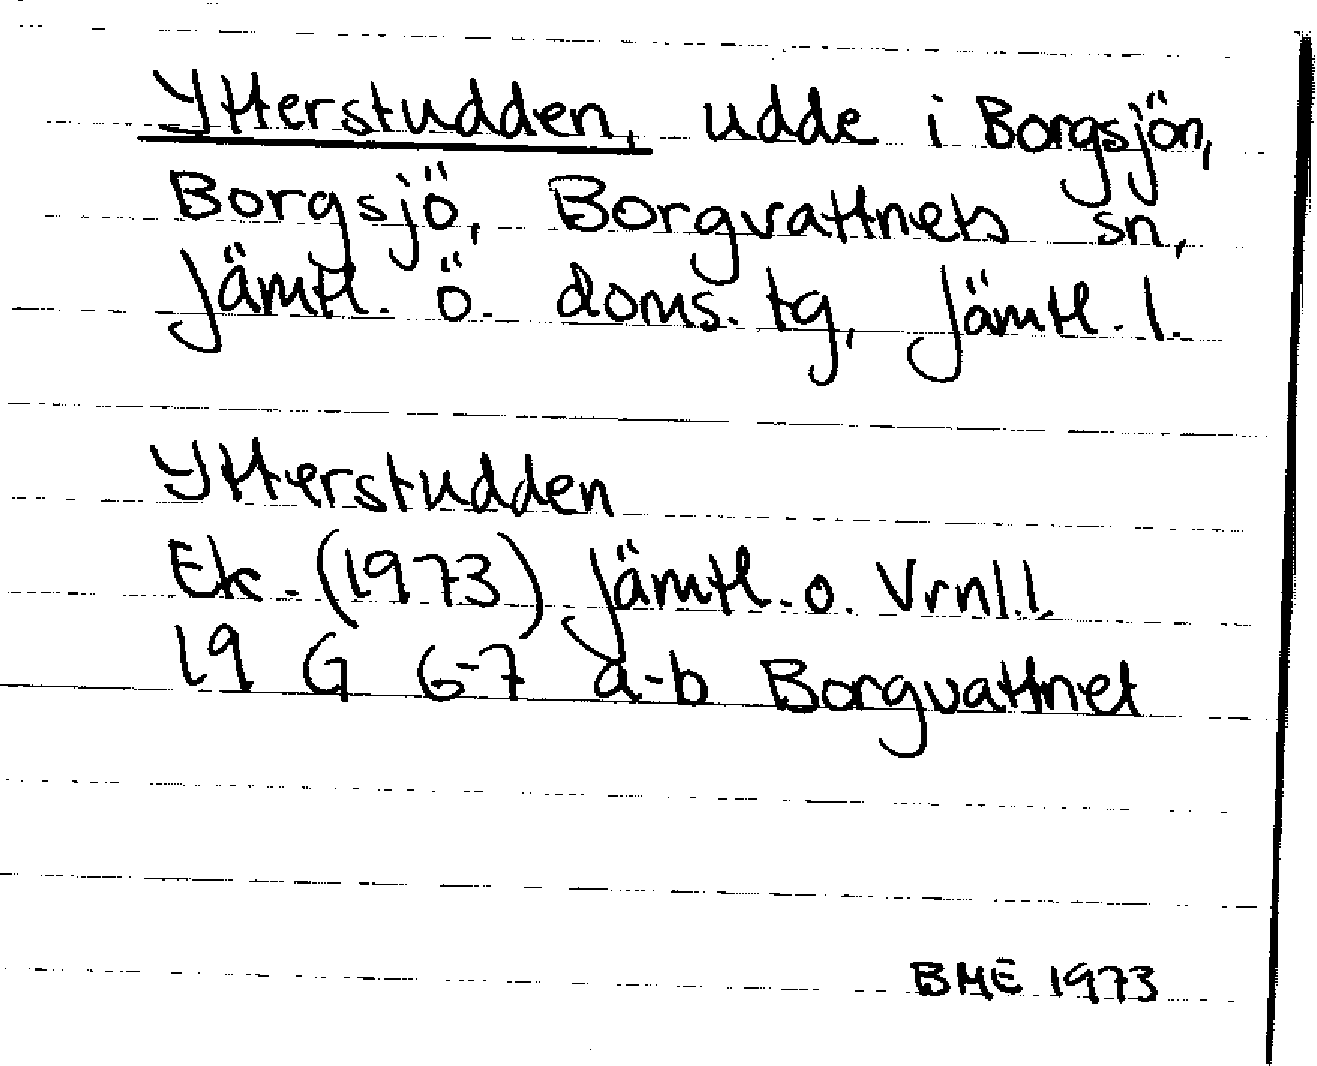 Ytterstudden, udde i Borgsjön,
Borgsjö, Borgvattnets sn,
Jämtl. ö. doms. tg, Jämtl. l.
Ytterstudden
Ek. (1973) Jämtl. o. Vrnl. l.
19 G 6-7 a-b Borgvattnet
BME 1973